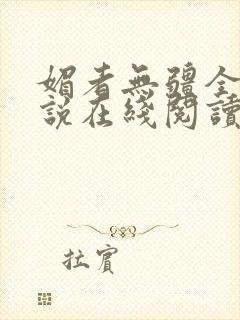 媚者無疆全
說在綫閱讀
拉賓